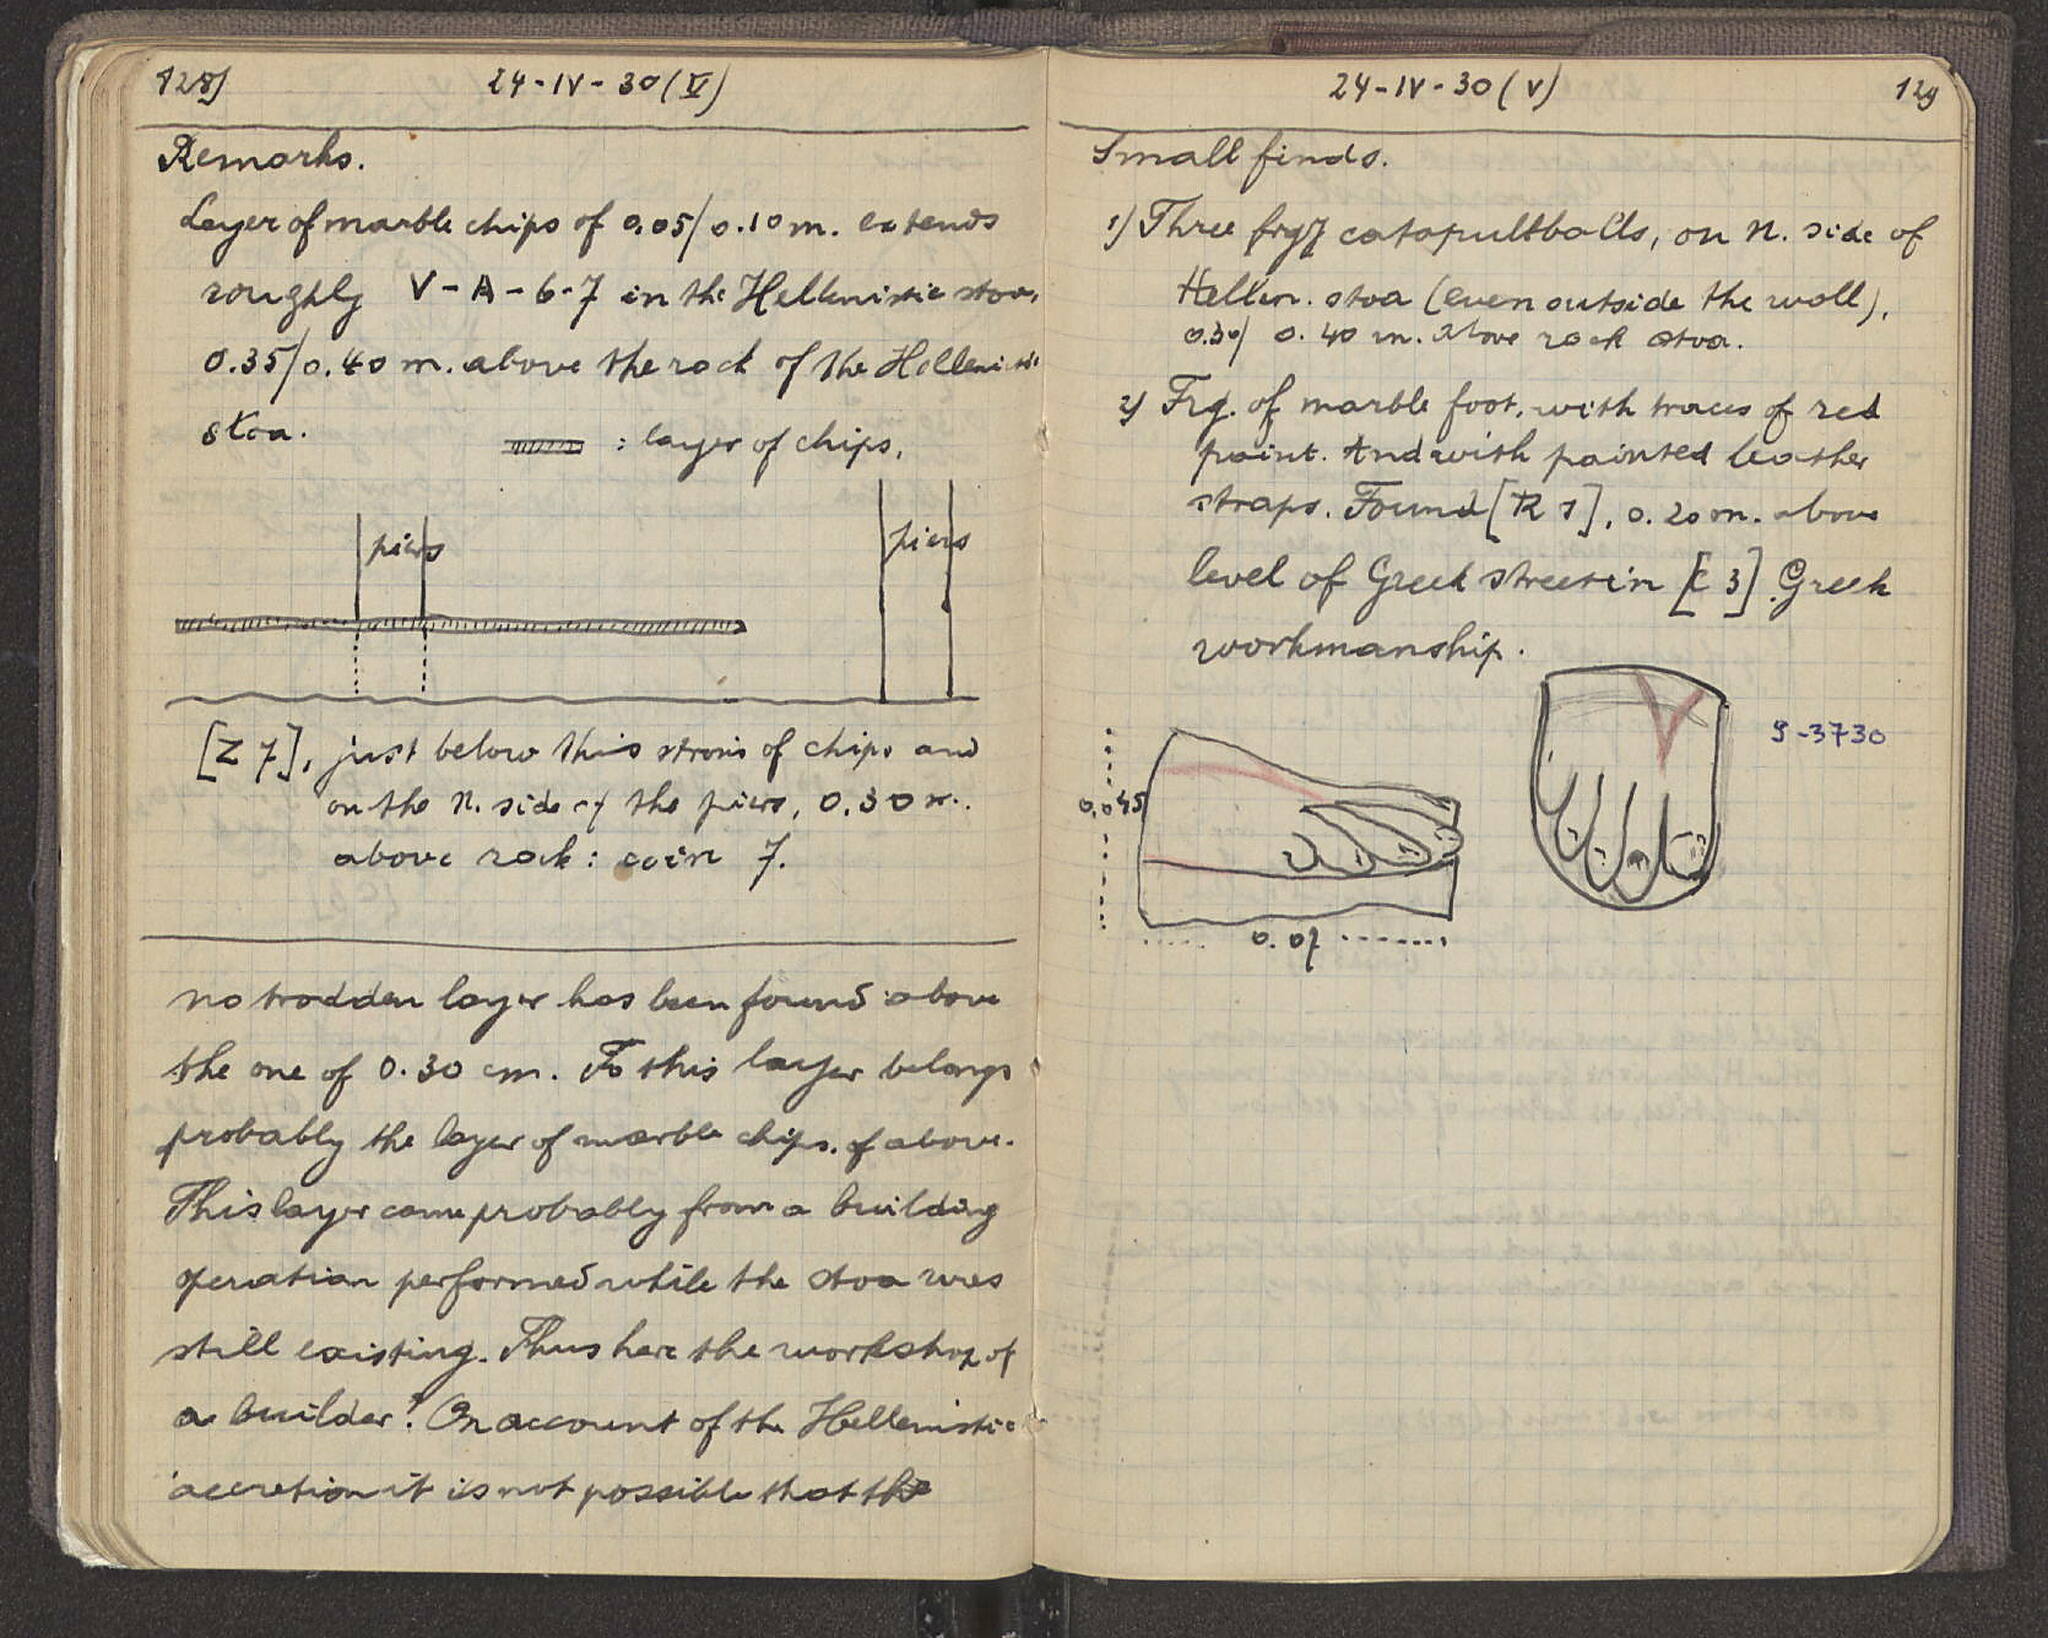 128)
24-IV-30 (V)
Remarks.
Layer of marble chips of 0.05/0.10 m. extends
roughly V-A-6-7 in the Hellenistic stoa,
0.35/0.40 m. above the rock of the Hellenistic
stoa.
: layer of chips.
piers
piers
[Z 7], just below this stroris of chips and
on the N. side of the piers, 0.30 m.
above rock: coin 7.
no trodden layer has been found above
the one of 0.30 cm. To this layer belongs
probably the layer of marble chips. of above.
This layer came probably from a building
operation performed while the stoa was
still existing. Thus here the workshop of
a builder? On account of the Hellenistic
accretion it is not possible that the
24-IV-30 (V)
129
Small finds.
1) Three catapultballs, on N. side of
Hellen. stoa (even outside the wall),
0.30/ 0.40 m. above rock stoa.
2) Frg. of marble foot, with traces of red
paint. And with painted leather
straps. Found , 0.20 m. above
level of Greek street in . Greek
workmanship.
S-3730
0.045
0.07